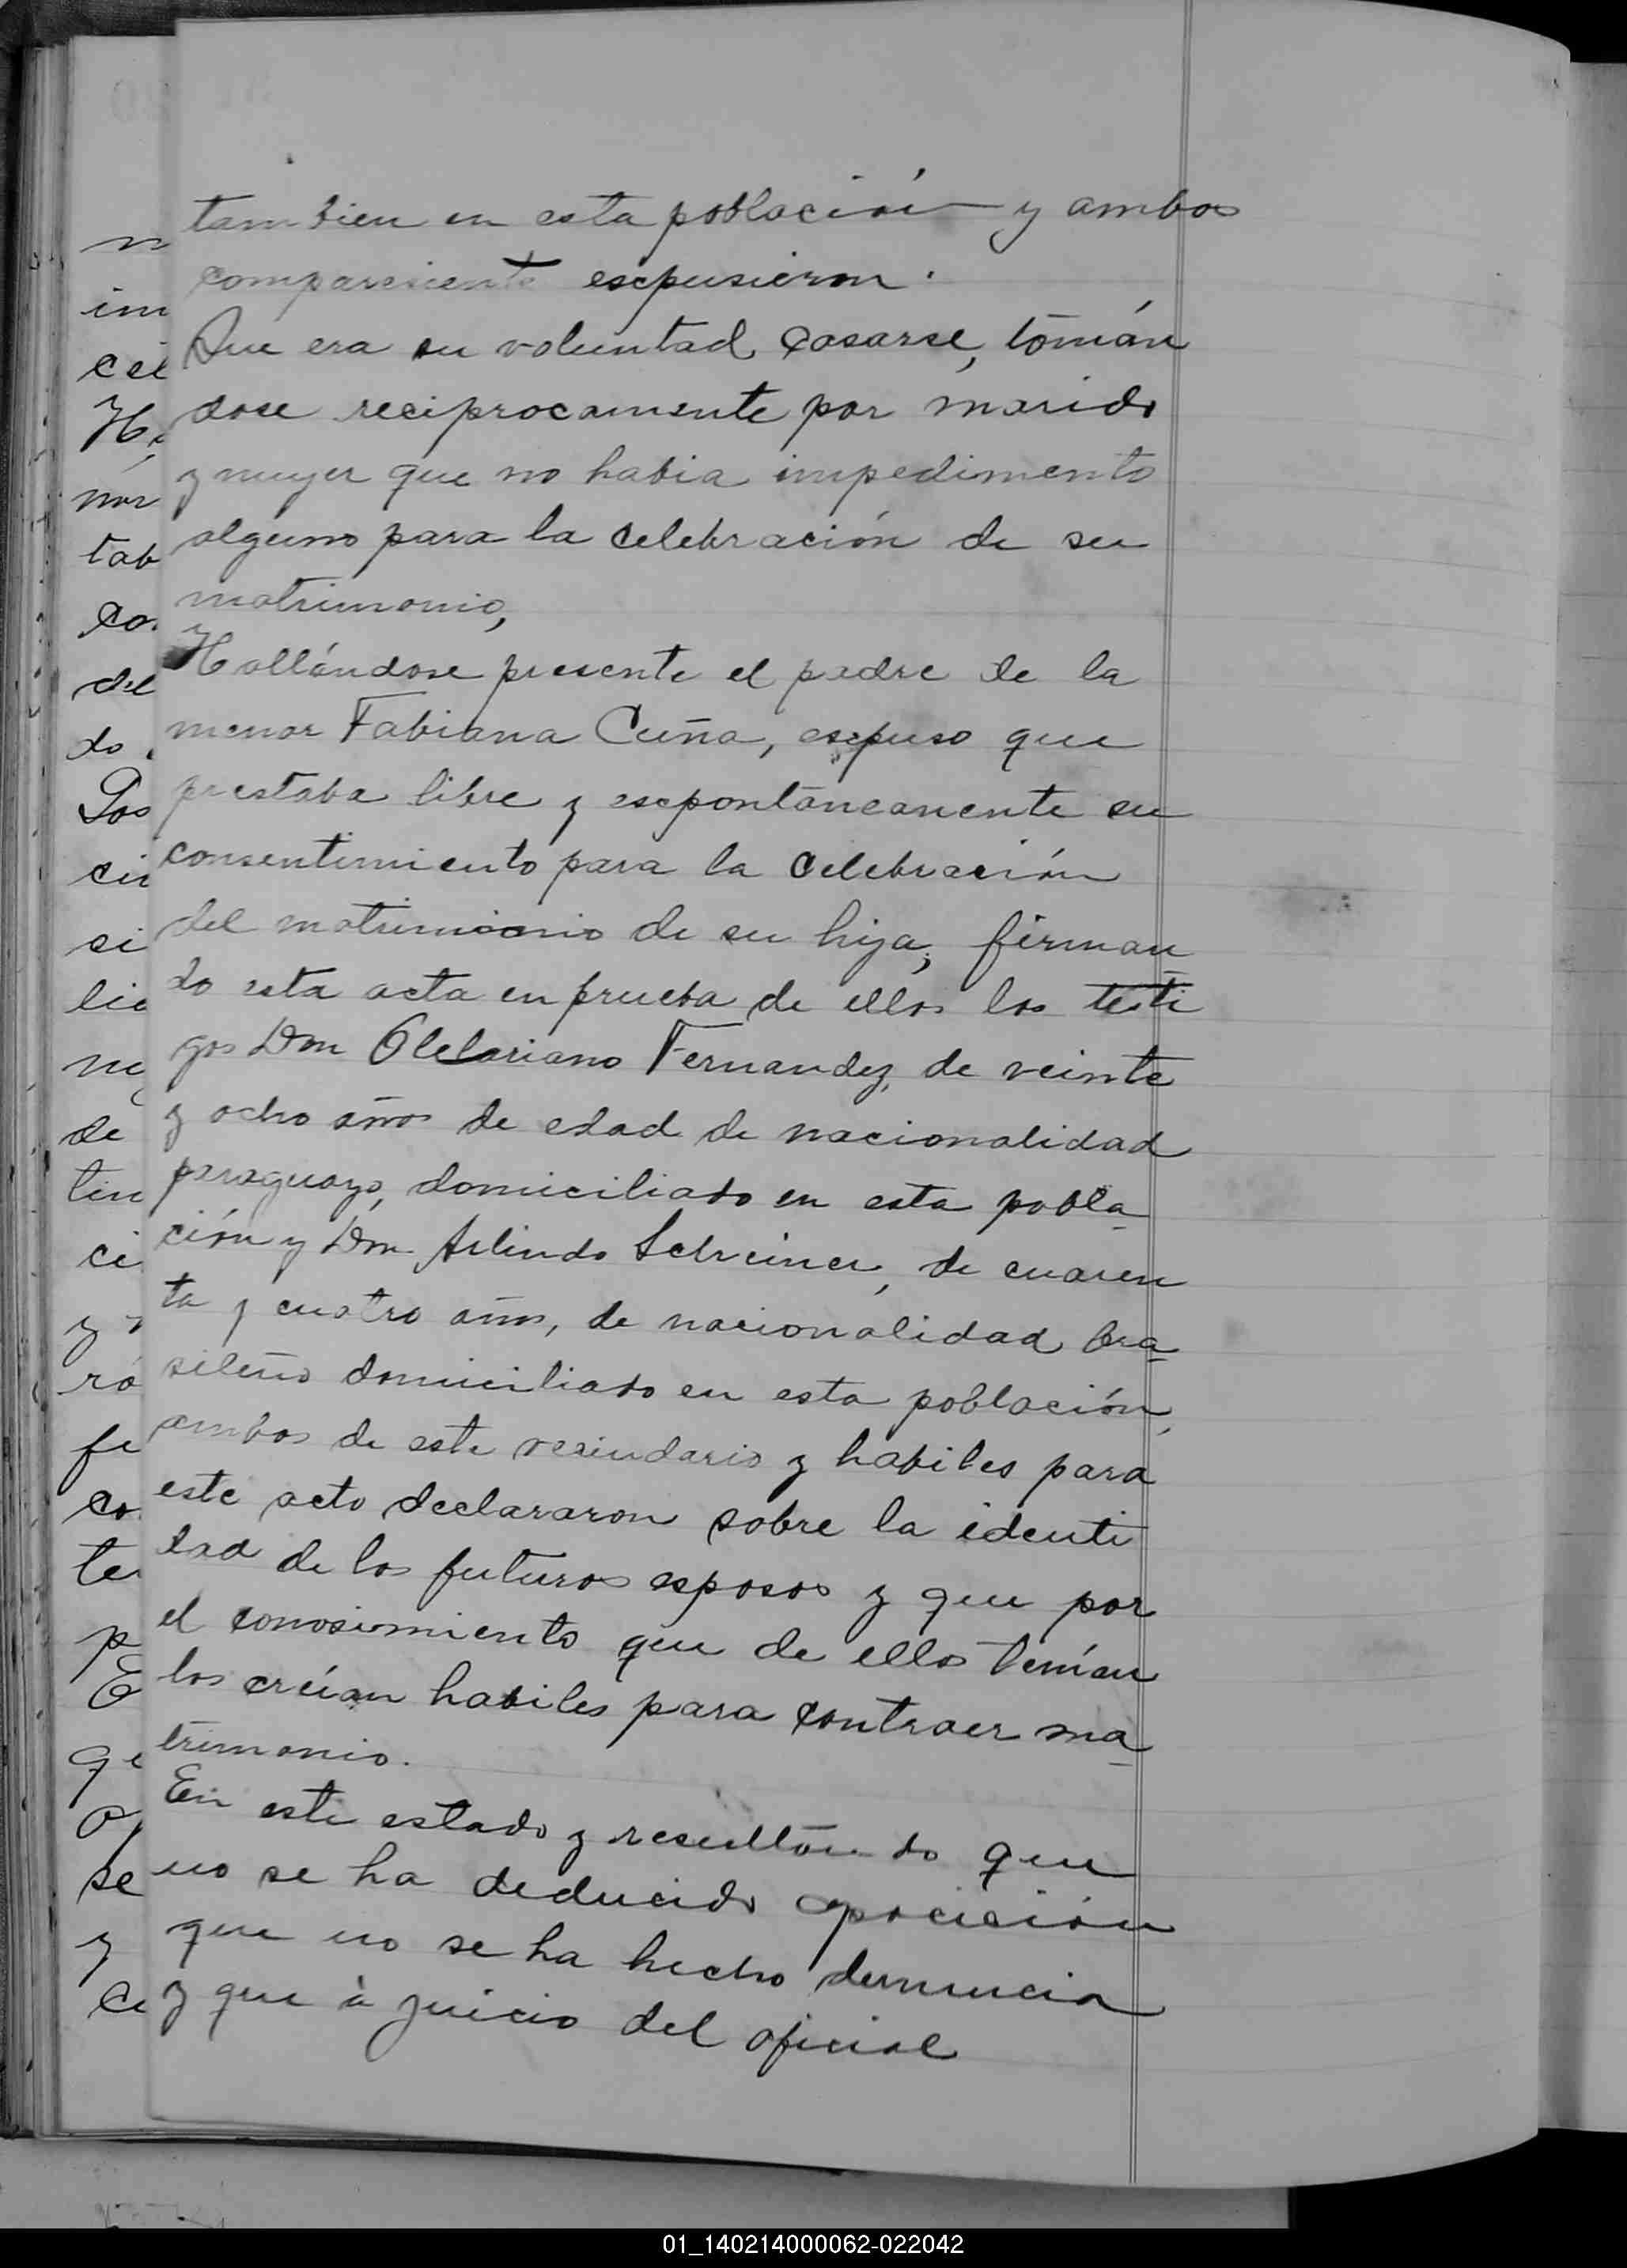 tambien en esta población y ambos
comparesiente esepusieron.
Que era su voluntad casarse, tomán
dose reciprocamente por marido
y muyer que no habia impedimento
alguno para la celebración de su
matrimonio,
Hallándose presente el padre de la
menor Fabiana Cuña, esepuso que
prestaba libre y esepontáneamente su
consentimiento para la celebración
del matrimonio de su hija, firman
do esta acta en prueba de ellos los testi
gos Don Fernandez, de veinte
y ocho años de edad de nacionalidad
paraguayo, domiciliado en esta pobla
ción y Don Arlindo Schreiner, de cuaren
ta y cuatro años, de nacionalidad bra
sileño domiciliado en esta población,
ambos de este vecindario y habiles para
este acto declararon sobre la identi
dad de los futuros esposos y que por
el conosimiento que de ellos tenían
los creían habiles para contraer ma
trimonio.
En este estado y resultando que
no se ha deducido oposición
que no se ha hecho denuncia
y que à juicio del oficial
01_140214000062-022042